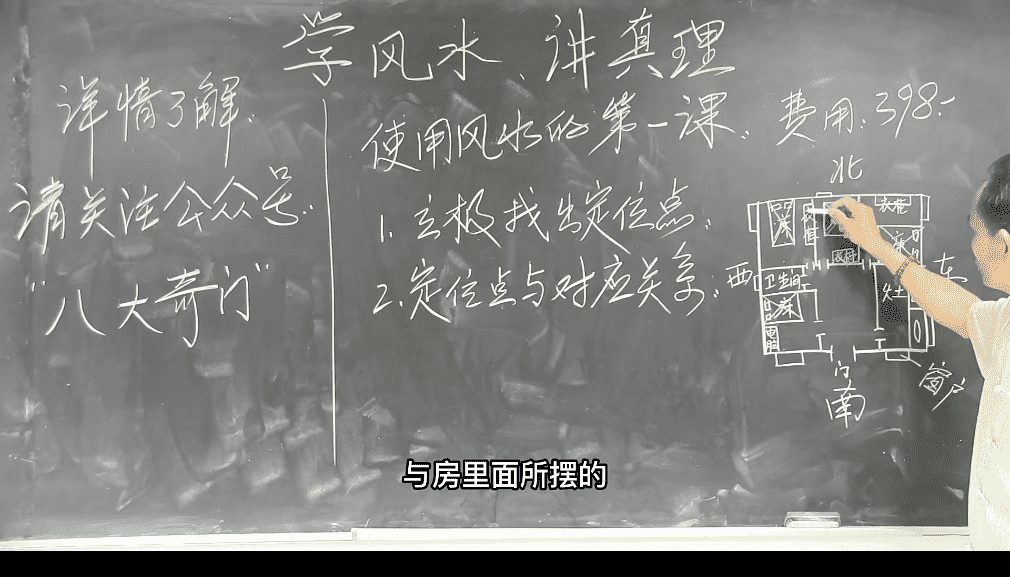 学风水、讲真理
详情了解.
请关注公众号.
"八大奇门"
使用风水的第一课.
费用:398-
1、立极找出定位点.
2、定位点与对应关系.
北
西
东
南
门
窗户
床
衣柜
卫生间
床
电脑
灶
与房里面所摆的